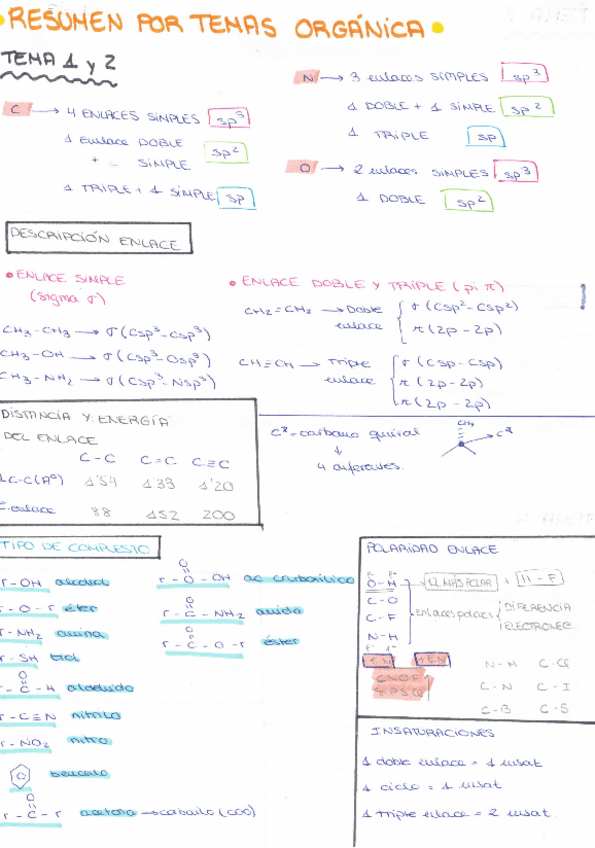 RESUMEN POR TEMAS ORGÁNICA
TEMA 1 y 2
C → 4 ENLACES SIMPLES sp³
1 Enlace DOBLE + SIMPLE sp²
1 TRIPLE + 1 SIMPLE sp
N → 3 enlaces SIMPLES sp³
1 DOBLE + 1 SIMPLE sp²
1 TRIPLE sp
O → 2 enlaces SIMPLES sp³
1 DOBLE sp²
DESCRIPCIÓN ENLACE
• ENLACE SIMPLE
(sigma σ)
CH₃-CH₃ → σ (Csp³-Csp³)
CH₃-OH → σ (Csp³-Osp³)
CH₃-NH₂ → σ (Csp³-Nsp³)
• ENLACE DOBLE Y TRIPLE (pi π)
CH₂=CH₂ → Doble enlace
σ (Csp²-Csp²)
π (2p-2p)
CH≡CH → Triple enlace
σ (Csp-Csp)
π (2p-2p)
π (2p-2p)
DISTANCIA Y ENERGÍA
DEL ENLACE
C-C C=C C≡C
C-C (Aº) 1'54 1'33 1'20
E. enlace 88 152 200
C*-carbono quiral
↓
4 diferentes.
CH₃
C*
TIPO DE COMPUESTO
r-OH alcohol
r-O-r éter
r-NH₂ amina
r-SH tiol
O
r-C-H aldehído
r-C≡N nitrilo
r-NO₂ nitro
benceno
O
r-C-r acetona → carbonilo (COO)
O
r-O-OH ac carboxílico
O
r-C-NH₂ amida
O
r-C-O-r éster
POLARIDAD ENLACE
O-H → POLAR H-F
C-O
C-F
N-H
Enlaces polares
DIFERENCIA
ELECTRONEG.
CNOF
SiPSCl
N-H C-Cl
C-N C-I
C-B C-S
INSATURACIONES
1 doble enlace = 1 insat
1 ciclo = 1 insat
1 triple enlace = 2 insat.